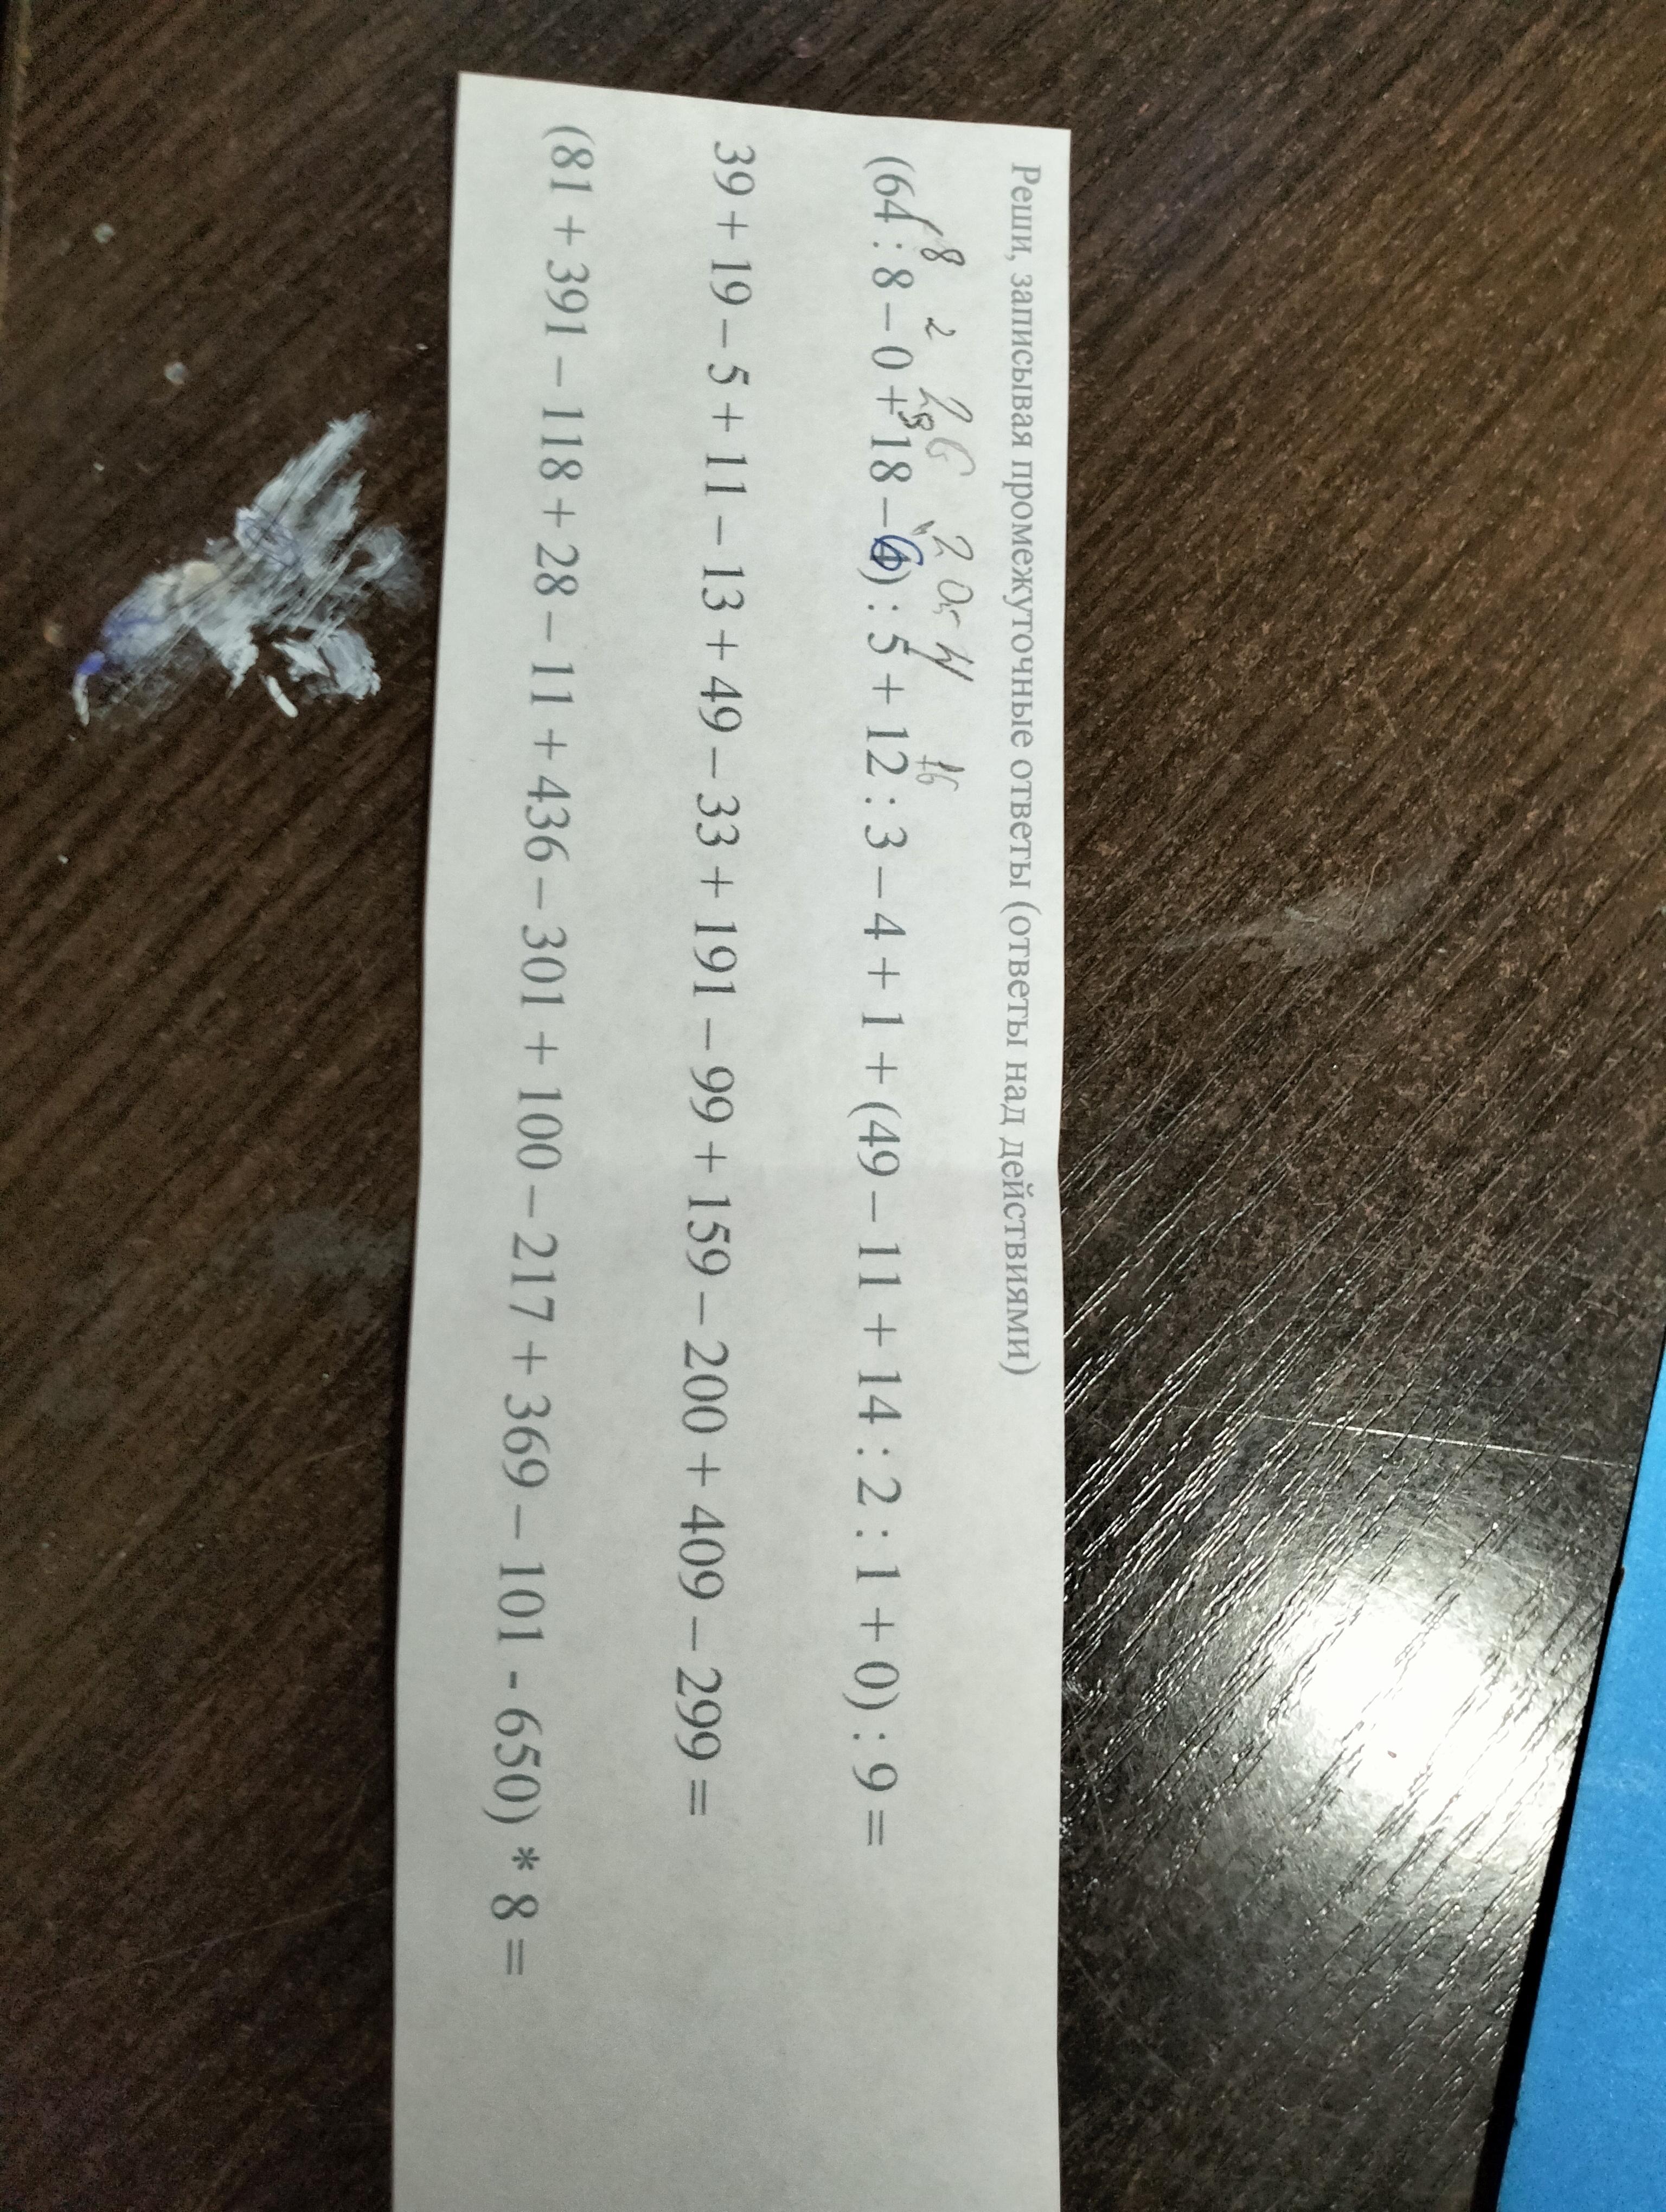 Реши, записывая промежуточные ответы (ответы над действиями)
8 2 26 20 4 16
(64 : 8 − 0 + 18 − 6) : 5 + 12 : 3 − 4 + 1 + (49 − 11 + 14 : 2 : 1 + 0) : 9 =
39 + 19 − 5 + 11 − 13 + 49 − 33 + 191 − 99 + 159 − 200 + 409 − 299 =
(81 + 391 − 118 + 28 − 11 + 436 − 301 + 100 − 217 + 369 − 101 - 650) * 8 =